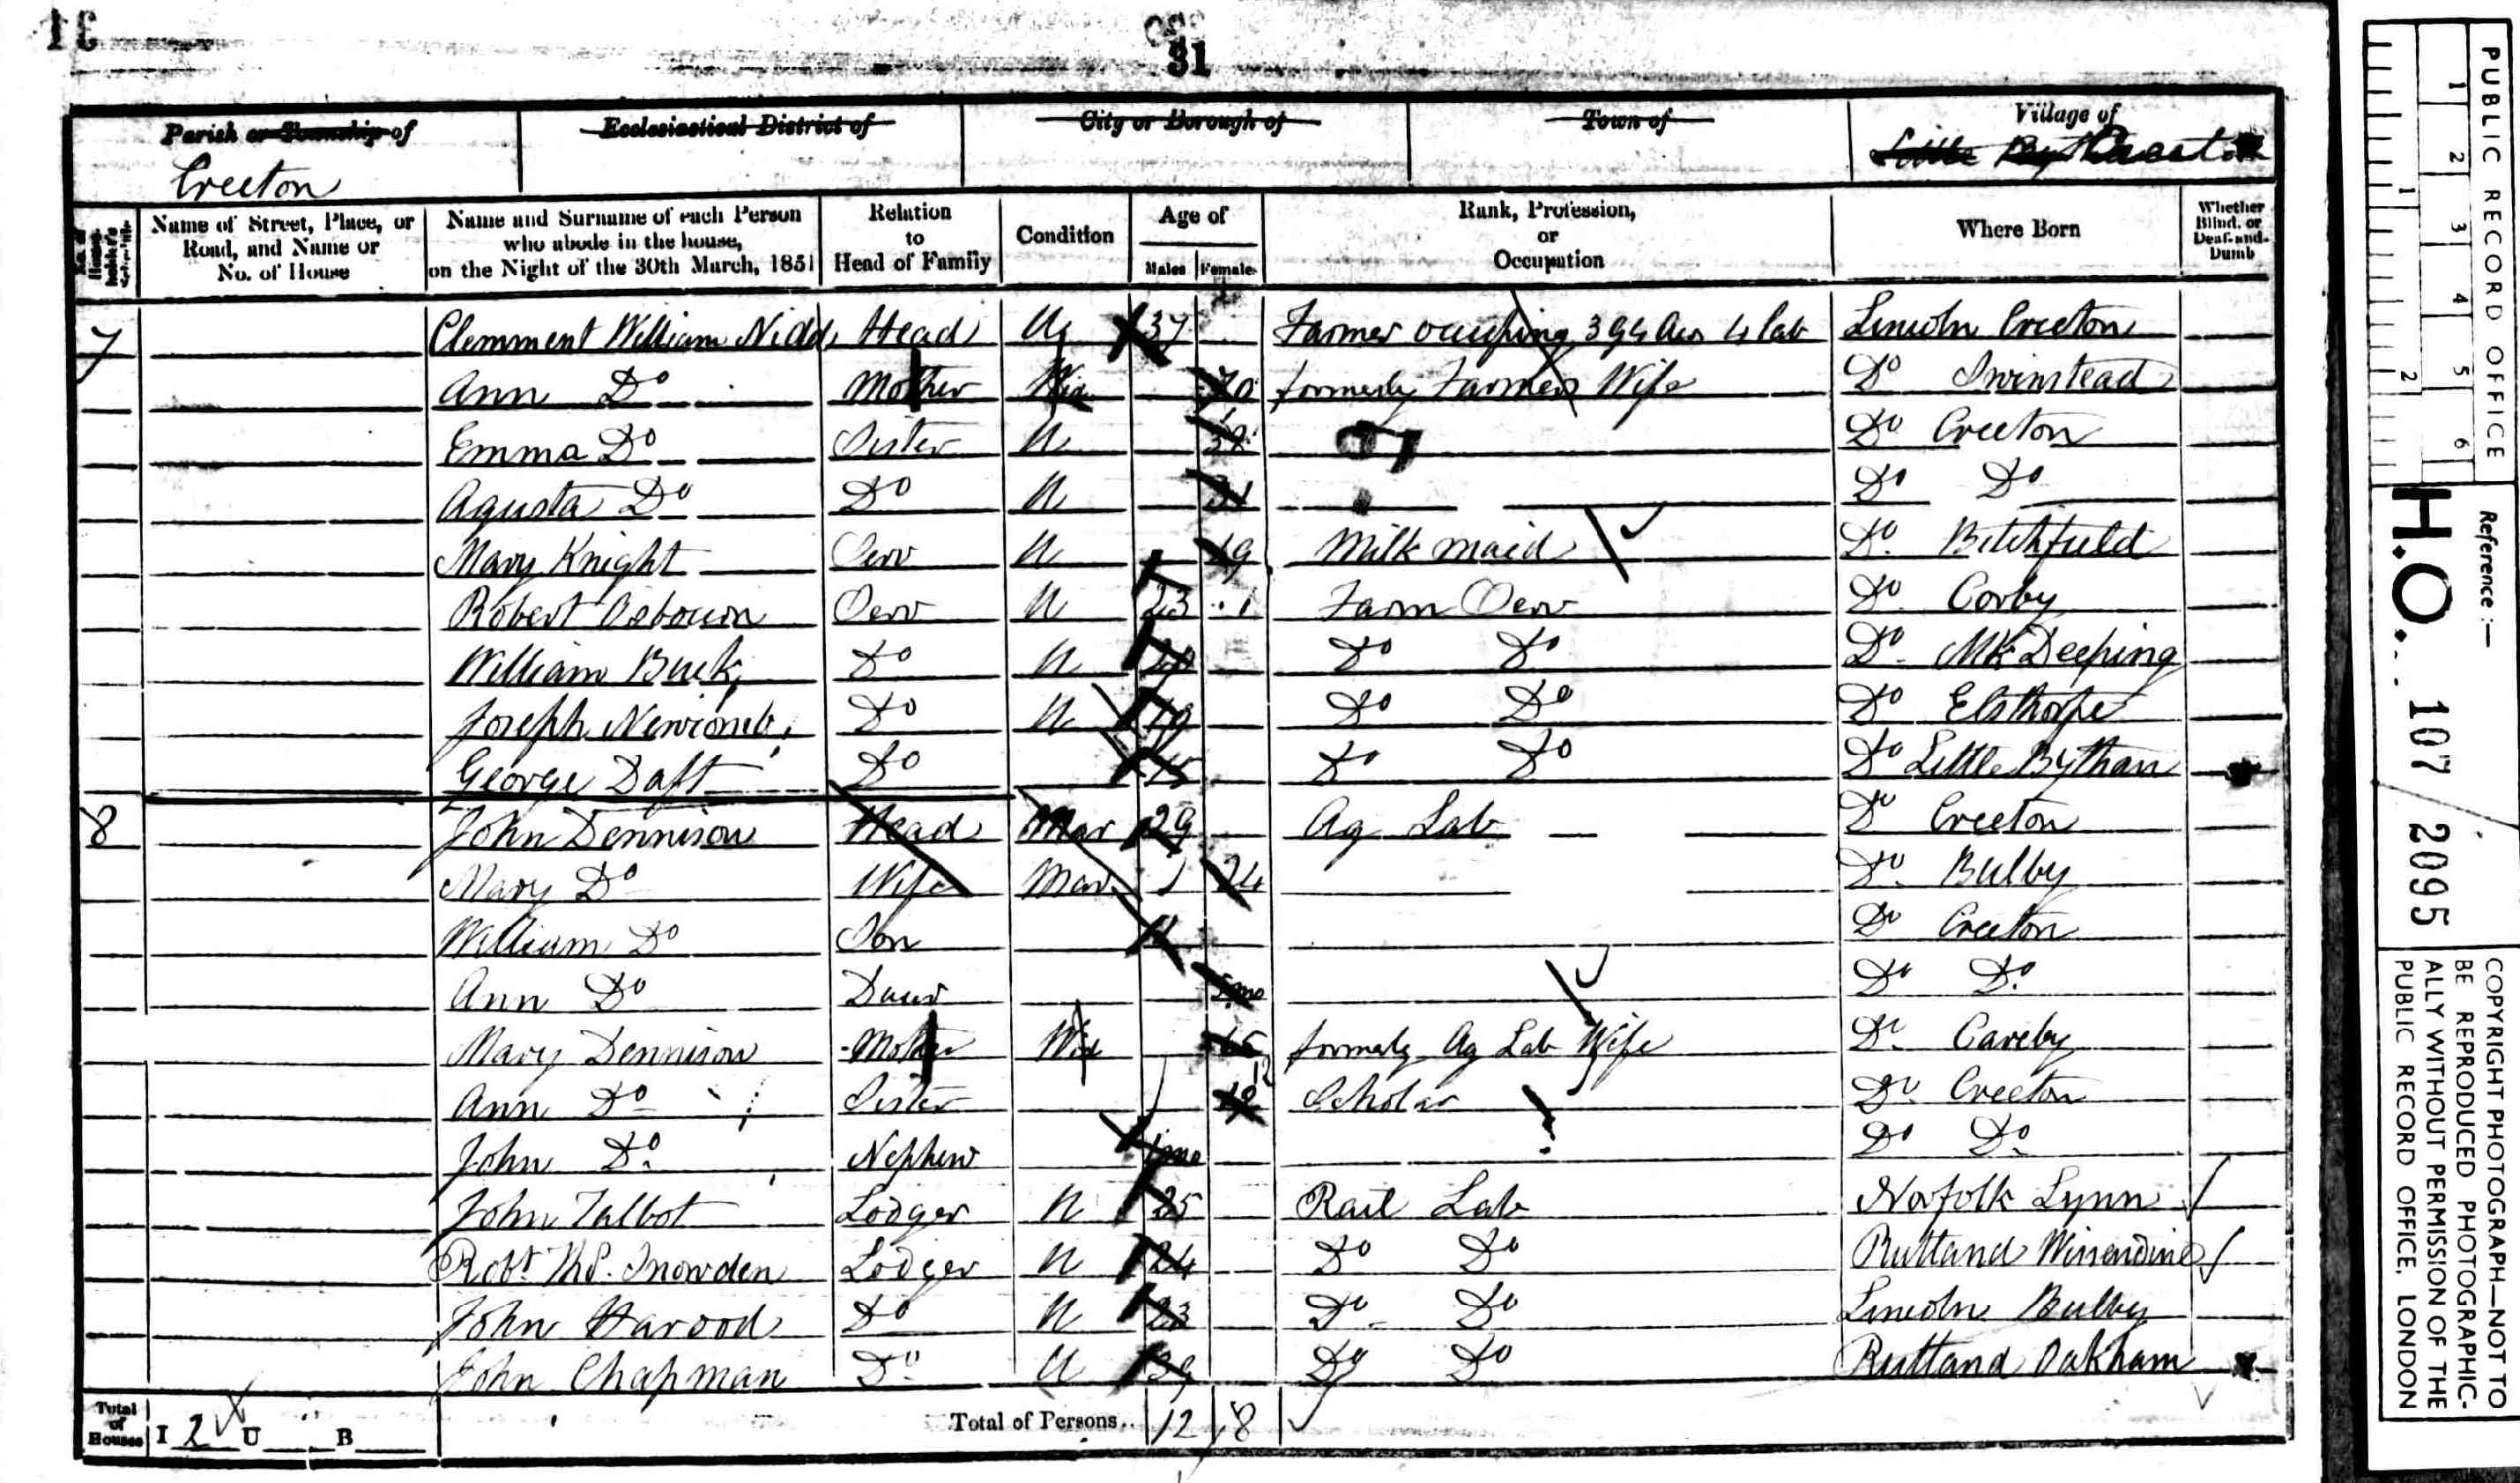 31
Parish or Township of
Creeton
Ecclesiastical District of
City or Borough of
Town of
Village of
Little Creeton
Name of Street, Place, or Road, and Name or No. of House
Name and Surname of each Person who abode in the house, on the Night of the 30th March, 1851
Relation to Head of Family
Condition
Age of
Males Females
Rank, Profession, or Occupation
Where Born
Whether Blind, or Deaf-and-Dumb
7 Clemment William Nidd Head U 37 Farmer occuping 394 Acr 4 lab Lincoln Creeton
Ann Do Mother Wid 70 formerly Farmers Wife Do Swinstead
Emma Do Sister U Do Creeton
Agusta Do Do U 31 Do Do
Mary Knight Serv U 19 Milk maid Do Bitchfield
Robert Osbourn Serv U 23 Farm Serv Do Corby
William Buck Do U Do Do Do Mk Deeping
Joseph Newcomb Do U 19 Do Do Do Elsthorpe
George Daft Do 15 Do Do Do Little Bytham
8 John Dennison Head Mar 29 Ag Lab Do Creeton
Mary Do Wife Mar 24 Do Bulby
William Do Son Do Creeton
Ann Do Daur 5mo Do Do
Mary Dennison Mother Wid formerly Ag Lab Wife Do Careby
Ann Do Sister 12 Scholar Do Creeton
John Do Nephew 1mo Do Do
John Talbot Lodger U 25 Rail Lab Norfolk Lynn
Robt Snowden Lodger U 24 Do Do Rutland Wissendine
John Harood Do U 23 Do Do Lincoln Bulby
John Chapman Do U 39 Do Do Rutland Oakham
Total of Houses I 2 U B Total of Persons.. 12 8
PUBLIC RECORD OFFICE
1 2 3 4 5 6
1 2
Reference:—
H.O. 107 / 2095
COPYRIGHT PHOTOGRAPH—NOT TO
BE REPRODUCED PHOTOGRAPHIC-
ALLY WITHOUT PERMISSION OF THE
PUBLIC RECORD OFFICE, LONDON